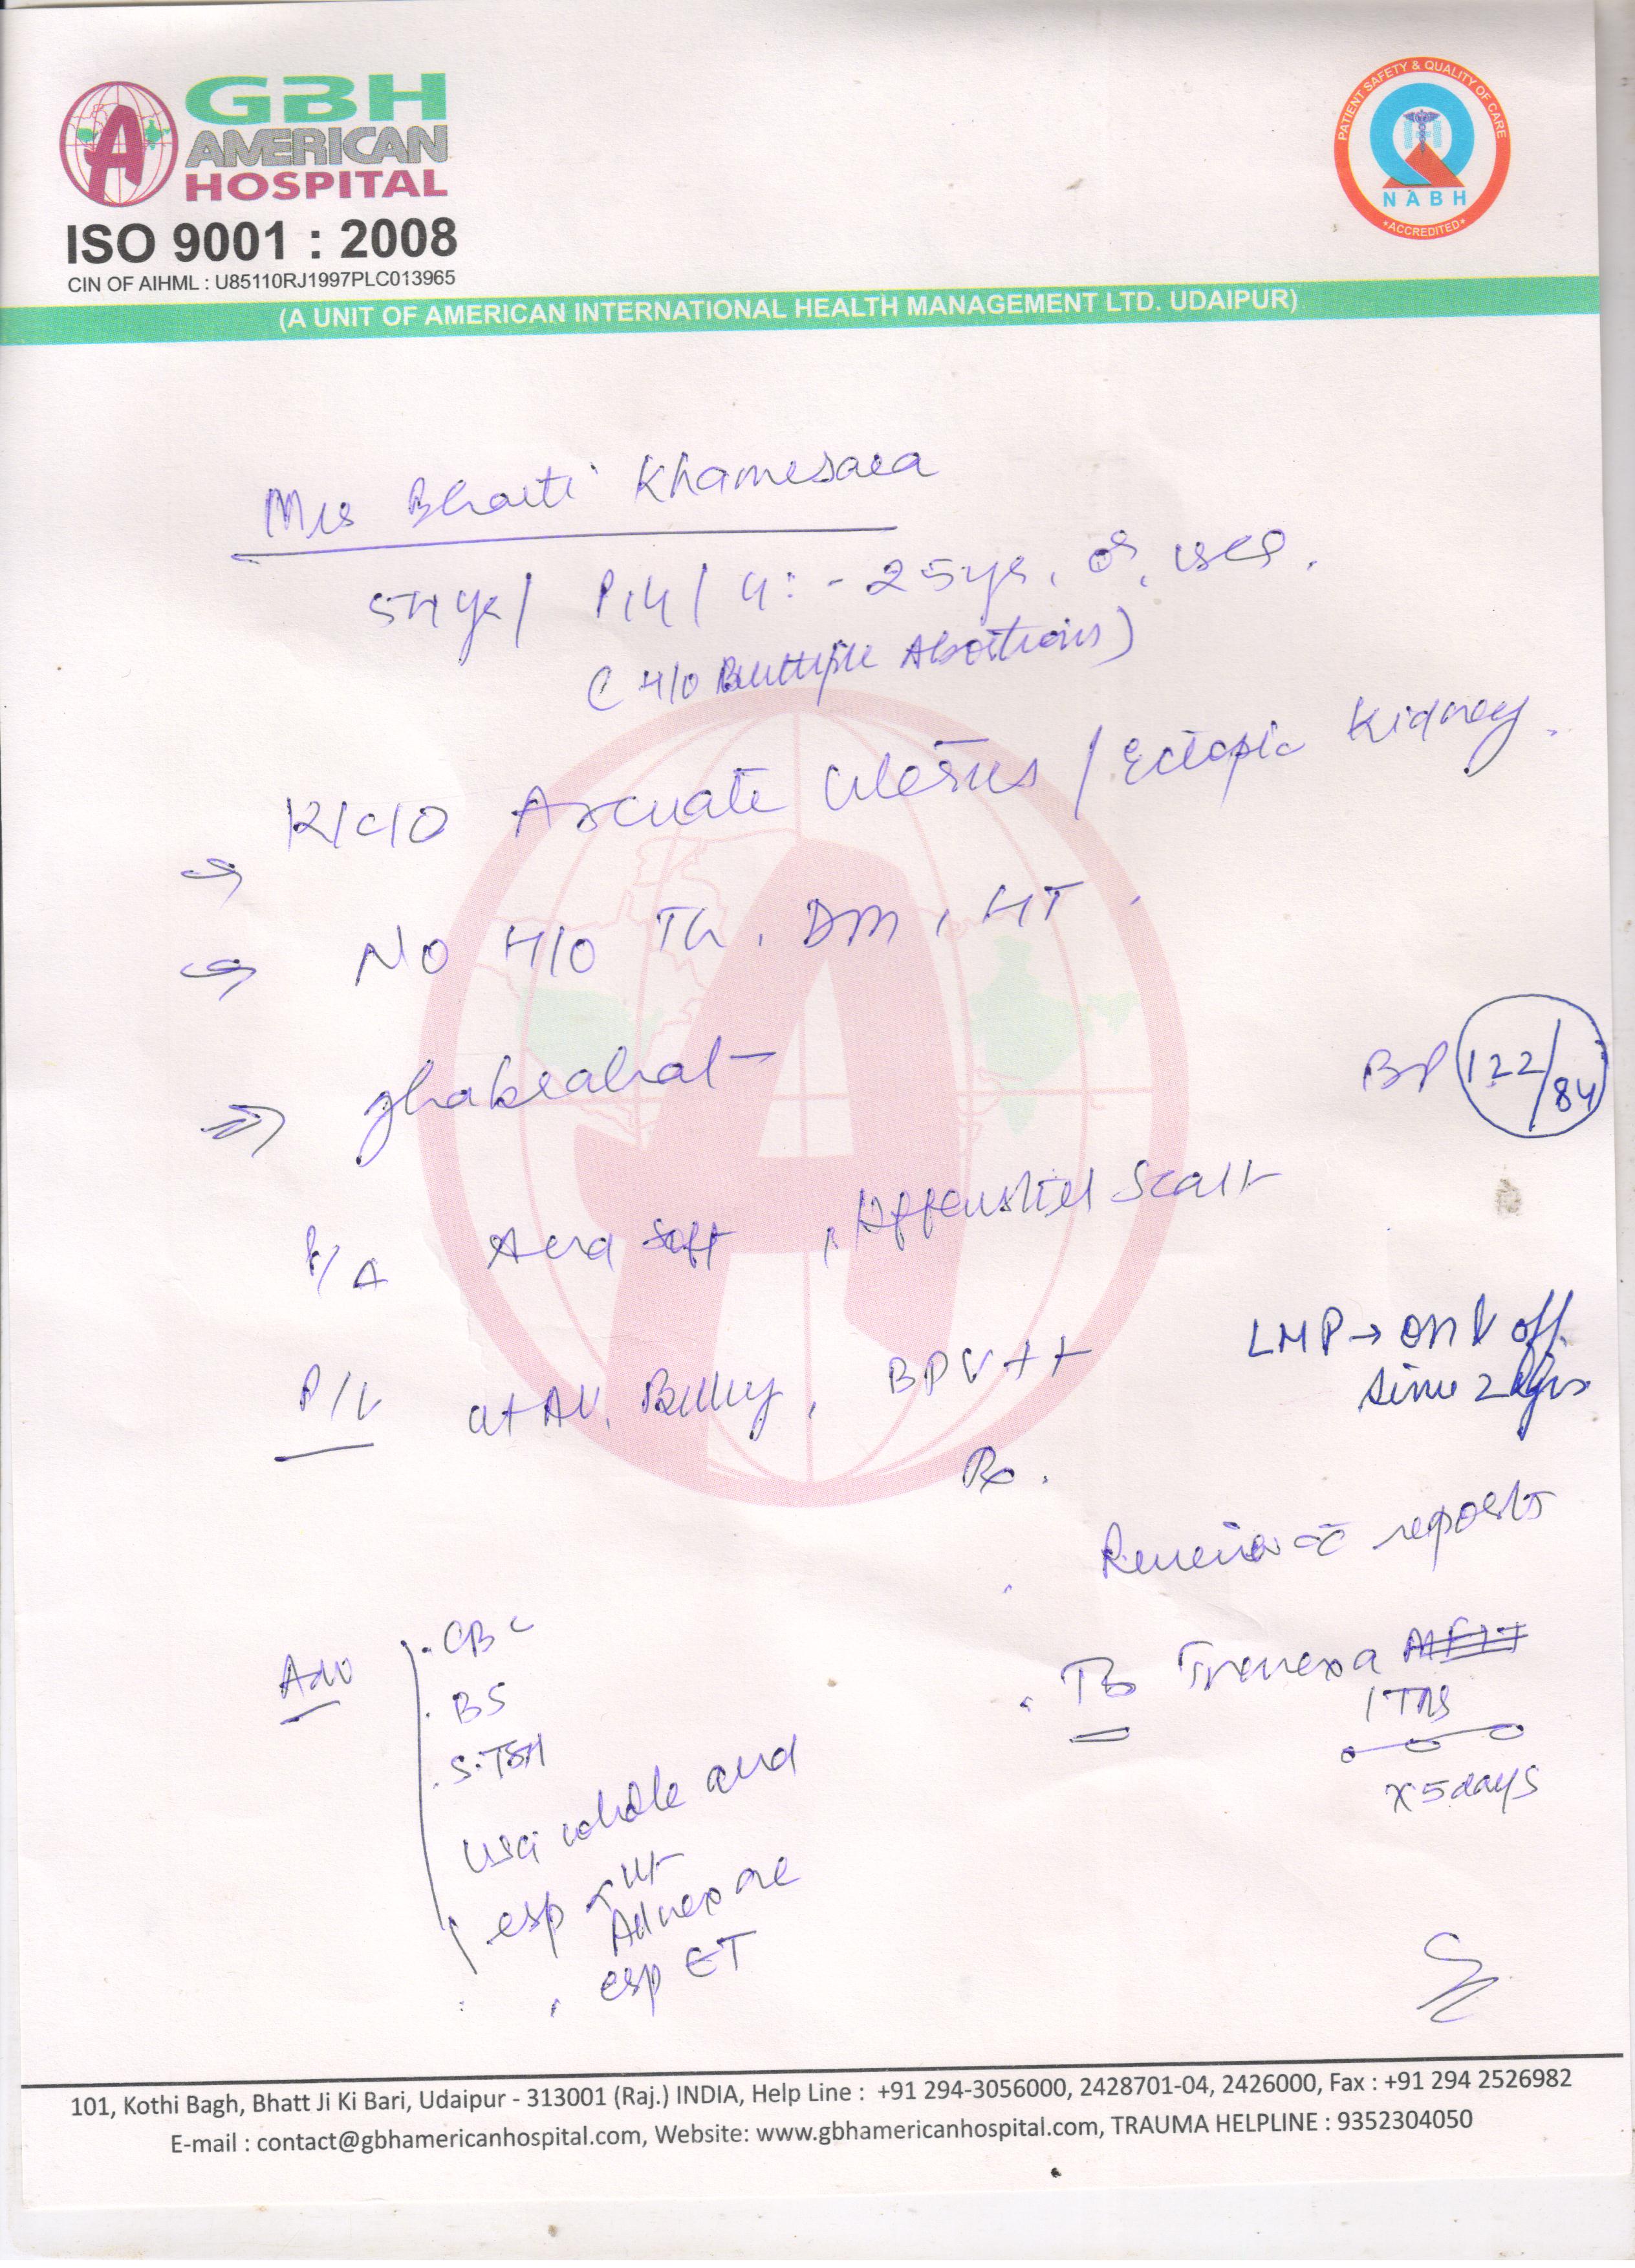 GBH
AMERICAN
HOSPITAL
ISO 9001 : 2008
CIN OF AIHML : U85110RJ1997PLC013965
PATIENT SAFETY & QUALITY OF CARE
NABH
ACCREDITED
(A UNIT OF AMERICAN INTERNATIONAL HEALTH MANAGEMENT LTD. UDAIPUR)
Mrs Bharti Khamesara
54yr/ P1L1 / - 25yrs,
(H/O Multiple Abortions)
K/C/O Arcuate Uterus / Ectopic Kidney.
No H/O TB, DM, HT.
ghabrahat
BP 122/84
P/A Abd soft, Scar+
LMP → on & off
since 2
P/V ut AV, Bulky, BPV++
Rx.
Review c̄ reports
Adv
CBC
BS
S.TSH
USG whole abd
esp ut
Adnexae
esp ET
Tb Trenexa
1 TDS
x 5 days
101, Kothi Bagh, Bhatt Ji Ki Bari, Udaipur - 313001 (Raj.) INDIA, Help Line : +91 294-3056000, 2428701-04, 2426000, Fax : +91 294 2526982
E-mail : contact@gbhamericanhospital.com, Website: www.gbhamericanhospital.com, TRAUMA HELPLINE : 9352304050